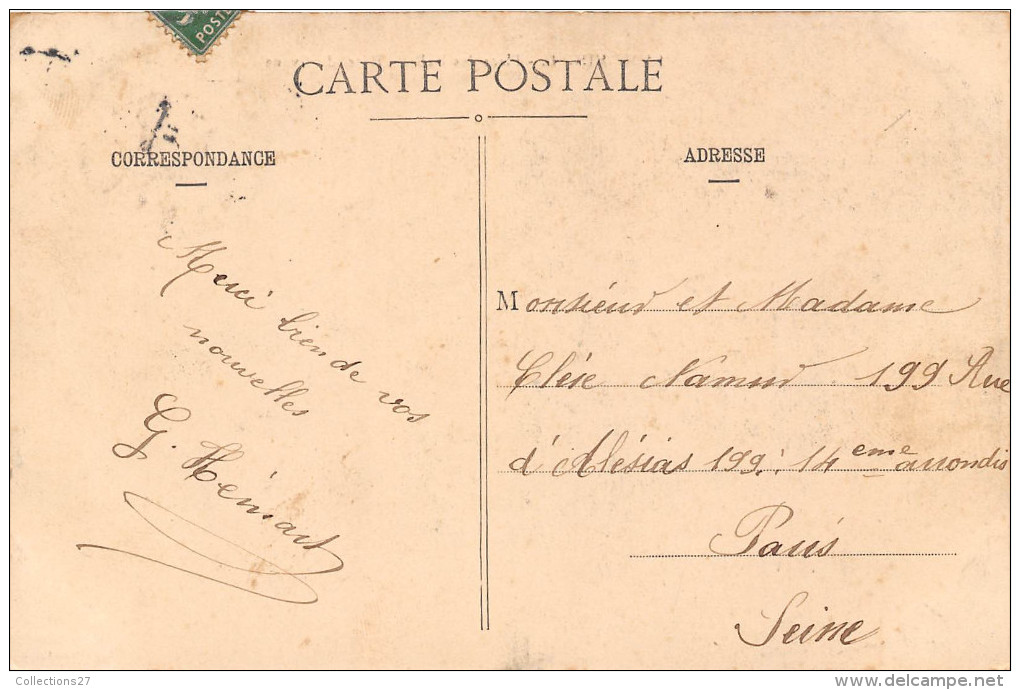 POSTES
CARTE POSTALE
CORRESPONDANCE
Merci bien de vos
nouvelles
G. Hénart
ADRESSE
Monsieur et Madame
Clére Namur 199 Rue
d'Alésias 199. 14eme arrondis
Paris
Seine
Collections27
delcampe.net